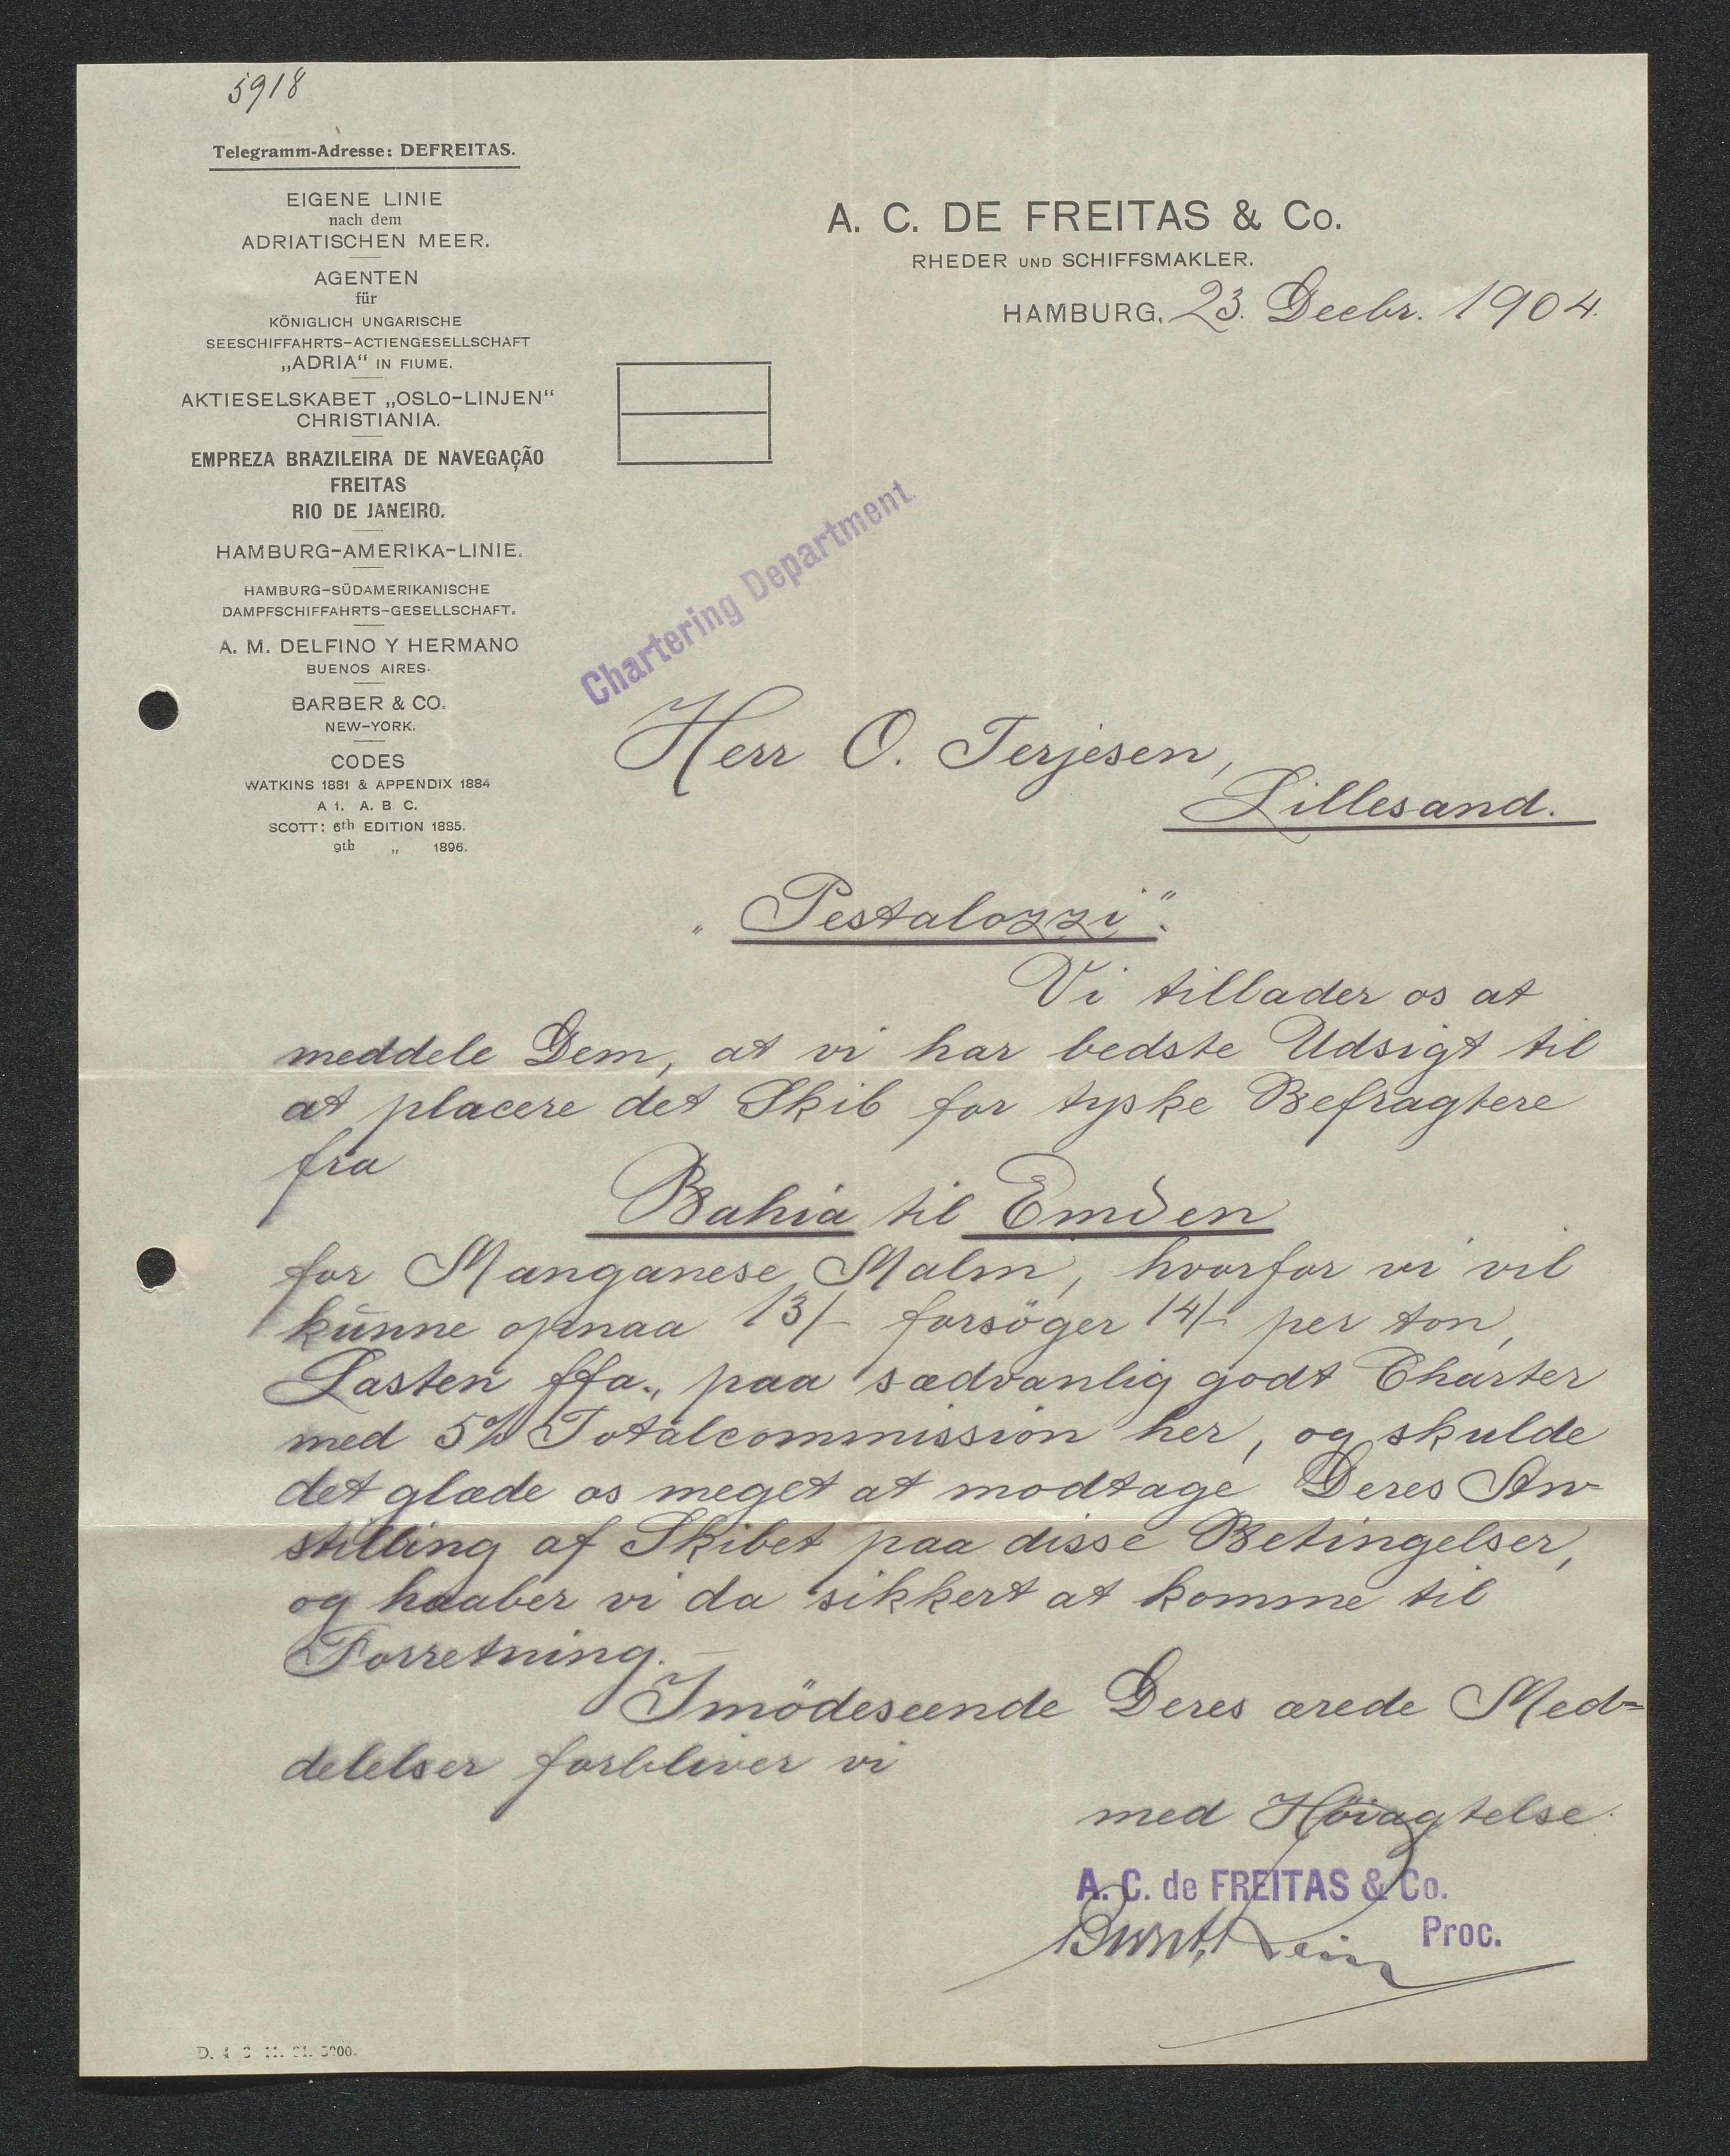 5918
Telegramm-Adresse: DEFREITAS.
EIGENE LINIE
nach dem
ADRIATISCHEN MEER.
AGENTEN
für
KÖNIGLICH UNGARISCHE
SEESCHIFFAHRTS-ACTIENGESELLSCHAFT
„ADRIA“ IN FIUME.
AKTIESELSKABET „OSLO-LINJEN“
CHRISTIANIA.
EMPREZA BRAZILEIRA DE NAVEGAÇÃO
FREITAS
RIO DE JANEIRO.
HAMBURG-AMERIKA-LINIE.
HAMBURG-SÜDAMERIKANISCHE
DAMPFSCHIFFAHRTS-GESELLSCHAFT.
A. M. DELFINO Y HERMANO
BUENOS AIRES.
BARBER & CO.
NEW-YORK.
CODES
WATKINS 1881 & APPENDIX 1884
A 1. A. B C.
SCOTT: 6th EDITION 1885.
9th „ 1896.
A. C. DE FREITAS & Co.
RHEDER UND SCHIFFSMAKLER.
HAMBURG, 23. Decbr. 1904.
Chartering Department.
Herr O. Terjesen,
Lillesand.
„Pestalozzi“.
Vi tillader os at
meddele Dem, at vi har bedste Udsigt til
at placere det Skib for tyske Befragtere
fra
Bahia til Emden
for Manganese Malm, hvorfor vi vil
kunne opnaa 13/- forsöger 14/- per ton,
Lasten ffa., paa sædvanlig godt Charter
med 5% Totalcommission her, og skulde
det glæde os meget at modtage Deres An-
stilling af Skibet paa disse Betingelser,
og haaber vi da sikkert at komme til
Forretning.-
Imödeseende Deres ærede Med=
delelser forbliver vi
med Höiagtelse.
A. C. de FREITAS & Co.
Proc.